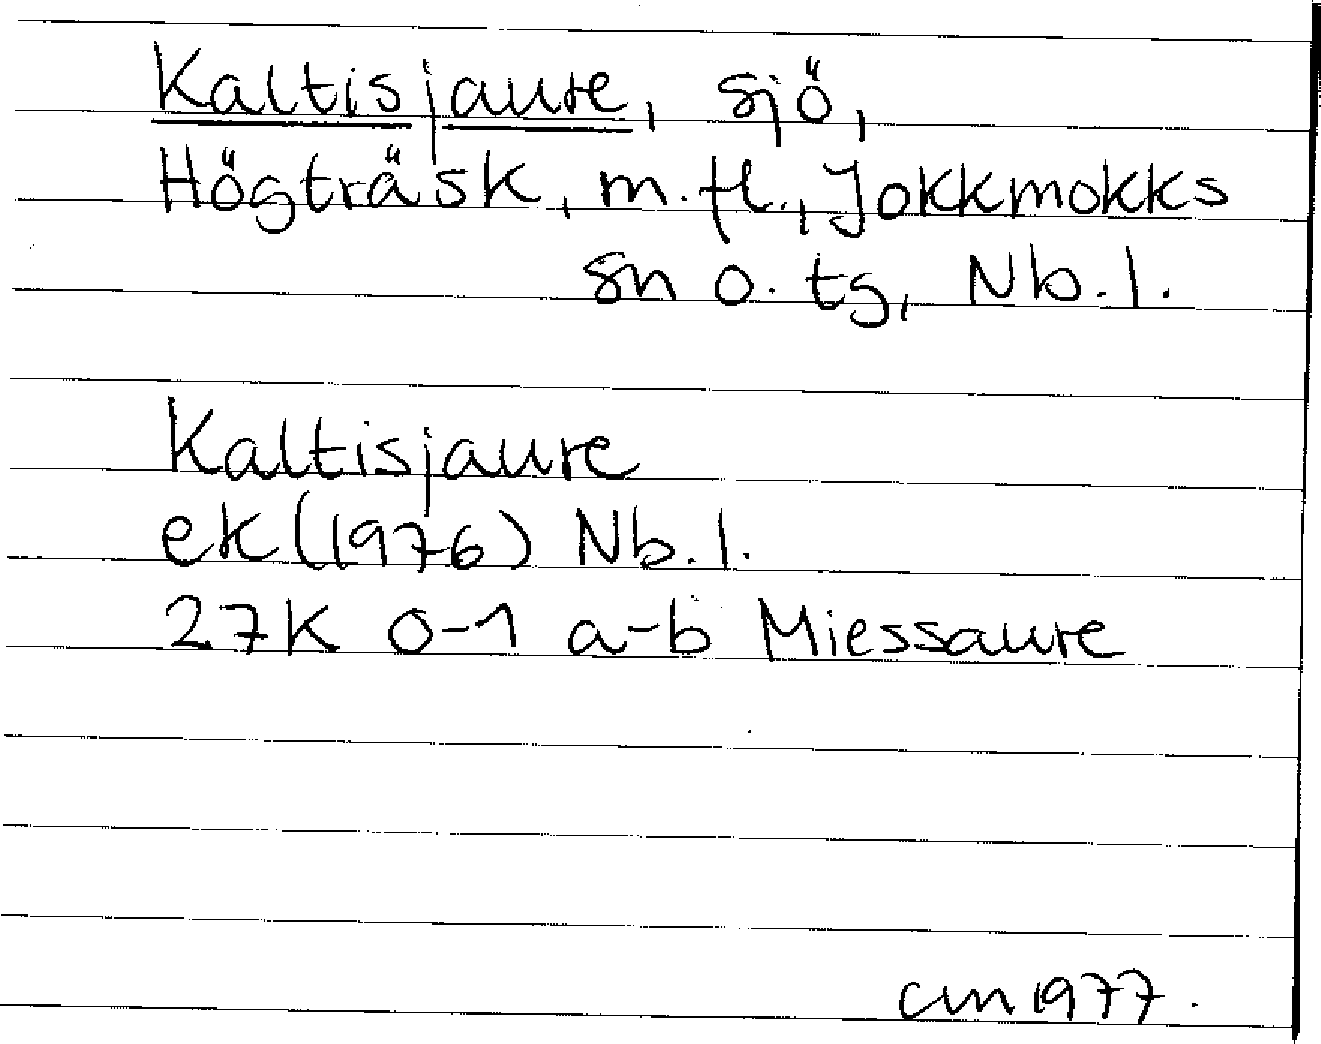 Kaltisjaure, sjö,
Högträsk, m.fl., Jokkmokks
sn o. tg, Nb.l.
Kaltisjaure
ek (1976) Nb.l.
27K 0-1 a-b Miessaure
cm 1977.